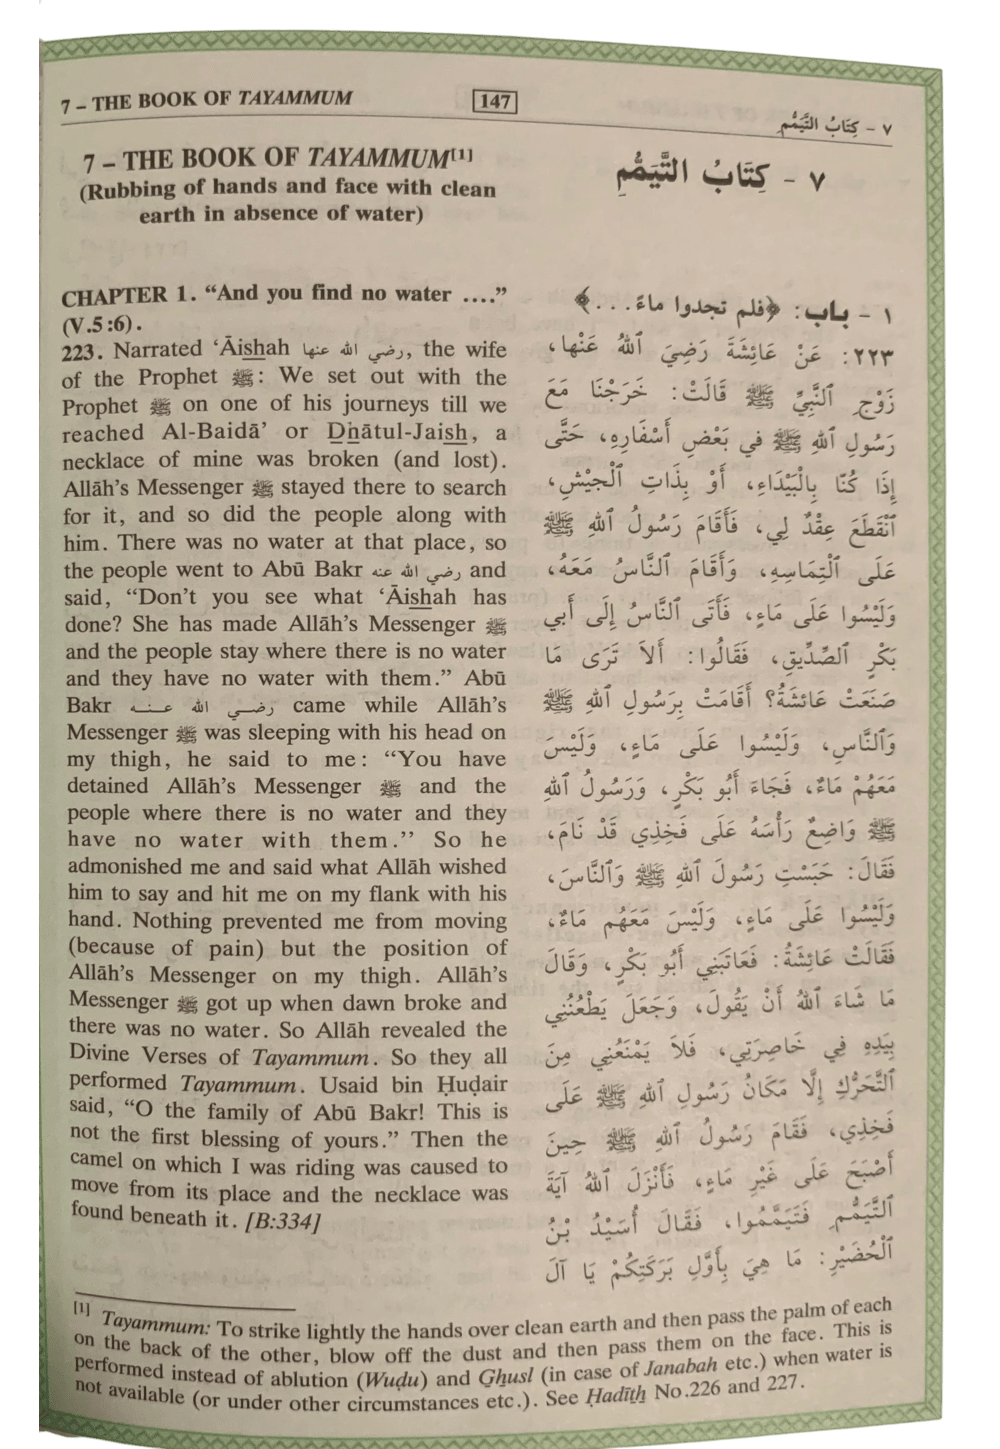 7 – THE BOOK OF TAYAMMUM
147
٧ - كِتَابُ التَّيَمُّمِ
7 – THE BOOK OF TAYAMMUM[1]
(Rubbing of hands and face with clean
earth in absence of water)
CHAPTER 1. “And you find no water ....”
(V.5:6).
223. Narrated ‘Āishah رضي الله عنها, the wife
of the Prophet ﷺ: We set out with the
Prophet ﷺ on one of his journeys till we
reached Al-Baidā’ or Dhātul-Jaish, a
necklace of mine was broken (and lost).
Allāh’s Messenger ﷺ stayed there to search
for it, and so did the people along with
him. There was no water at that place, so
the people went to Abū Bakr رضي الله عنه and
said, “Don’t you see what ‘Āishah has
done? She has made Allāh’s Messenger ﷺ
and the people stay where there is no water
and they have no water with them.” Abū
Bakr رضي الله عنه came while Allāh’s
Messenger ﷺ was sleeping with his head on
my thigh, he said to me: “You have
detained Allāh’s Messenger ﷺ and the
people where there is no water and they
have no water with them.’’ So he
admonished me and said what Allāh wished
him to say and hit me on my flank with his
hand. Nothing prevented me from moving
(because of pain) but the position of
Allāh’s Messenger on my thigh. Allāh’s
Messenger ﷺ got up when dawn broke and
there was no water. So Allāh revealed the
Divine Verses of Tayammum. So they all
performed Tayammum. Usaid bin Ḥuḍair
said, “O the family of Abū Bakr! This is
not the first blessing of yours.” Then the
camel on which I was riding was caused to
move from its place and the necklace was
found beneath it. [B:334]
٧ - كِتَابُ التَّيَمُّمِ
١ - باب: ﴿فلم تجدوا ماءً. . . .﴾
٢٢٣: عَنْ عَائِشَةَ رَضِيَ ٱللهُ عَنْهَا،
زَوْجِ ٱلنَّبِيِّ ﷺ قَالَتْ: خَرَجْنَا مَعَ
رَسُولِ ٱللهِ ﷺ في بَعْضِ أَسْفَارِهِ، حَتَّى
إِذَا كُنَّا بِالْبَيْدَاءِ، أَوْ بِذَاتِ ٱلْجَيْشِ،
ٱنْقَطَعَ عِقْدٌ لِي، فَأَقَامَ رَسُولُ ٱللهِ ﷺ
عَلَى ٱلْتِمَاسِهِ، وَأَقَامَ ٱلنَّاسُ مَعَهُ،
وَلَيْسُوا عَلَى مَاءٍ، فَأَتَى ٱلنَّاسُ إِلَى أَبي
بَكْرٍ ٱلصِّدِّيقِ، فَقَالُوا: أَلاَ تَرَى مَا
صَنَعَتْ عَائِشَةُ؟ أَقَامَتْ بِرَسُولِ ٱللهِ ﷺ
وَٱلنَّاسِ، وَلَيْسُوا عَلَى مَاءٍ، وَلَيْسَ
مَعَهُمْ مَاءٌ، فَجَاءَ أَبُو بَكْرٍ، وَرَسُولُ ٱللهِ
ﷺ وَاضِعٌ رَأْسَهُ عَلَى فَخِذِي قَدْ نَامَ،
فَقَالَ: حَبَسْتِ رَسُولَ ٱللهِ ﷺ وَٱلنَّاسَ،
وَلَيْسُوا عَلَى مَاءٍ، وَلَيْسَ مَعَهُم مَاءٌ،
فَقَالَتْ عَائِشَةُ: فَعَاتَبَنِي أَبُو بَكْرٍ، وَقَالَ
مَا شَاءَ ٱللهُ أَنْ يَقُولَ، وَجَعَلَ يَطْعُنُنِي
بِيَدِهِ فِي خَاصِرَتِي، فَلاَ يَمْنَعُنِي مِنَ
ٱلتَّحَرُّكِ إِلَّا مَكَانُ رَسُولِ ٱللهِ ﷺ عَلَى
فَخِذِي، فَقَامَ رَسُولُ ٱللهِ ﷺ حِينَ
أَصْبَحَ عَلَى غَيْرِ مَاءٍ، فَأَنْزَلَ ٱللهُ آيَةَ
ٱلتَّيَمُّمِ فَتَيَمَّمُوا، فَقَالَ أُسَيْدُ بْنُ
ٱلْحُضَيْرِ: مَا هِيَ بِأَوَّلِ بَرَكَتِكُمْ يَا آلَ
[1] Tayammum: To strike lightly the hands over clean earth and then pass the palm of each
on the back of the other, blow off the dust and then pass them on the face. This is
performed instead of ablution (Wuḍu) and Ghusl (in case of Janabah etc.) when water is
not available (or under other circumstances etc.). See Ḥadīth No.226 and 227.